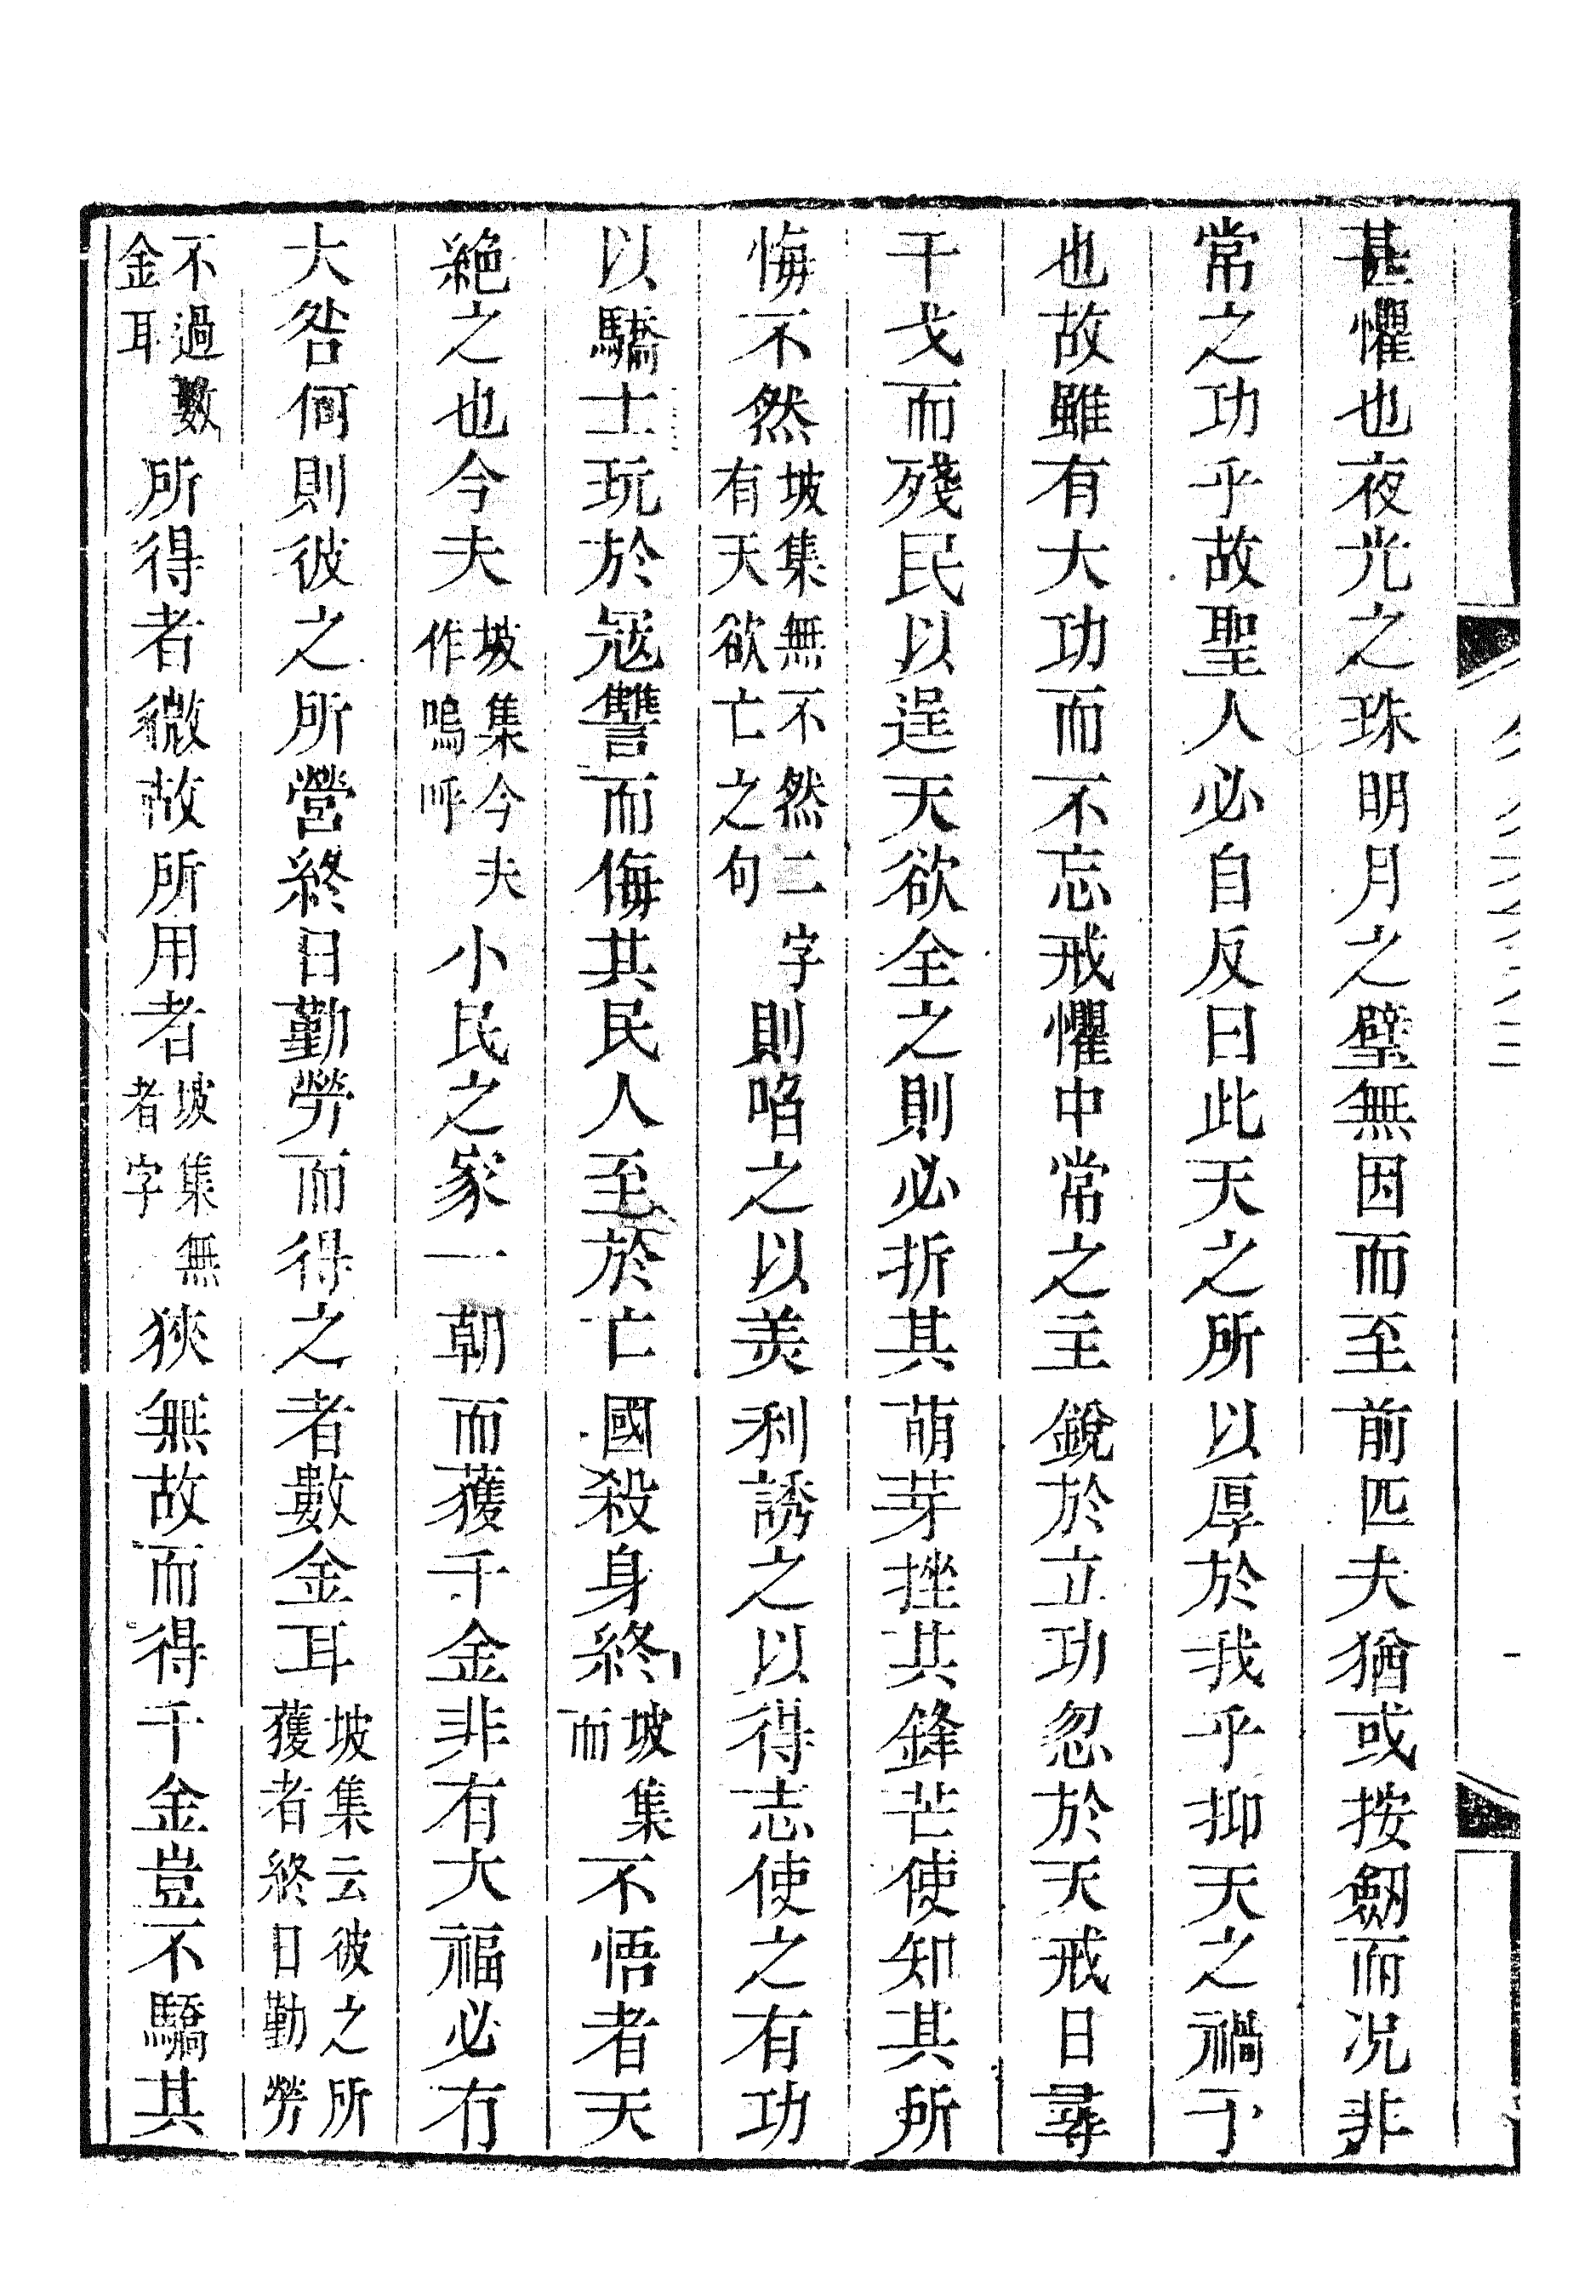 甚懼也夜光之珠明月之璧無因而至前匹夫猶或按劒而况非
常之功乎故聖人必自反曰此天之所以厚於我乎抑天之禍予
也故雖有大功而不忘戒懼中常之主銳於立功忽於天戒日尋
干戈而殘民以逞天欲全之則必折其萌芽挫其鋒芒使知其所
悔不然坡集無不然二字有天欲亡之句則啗之以美利誘之以得志使之有功
以驕士玩於寇讐而侮其民人至於亡國殺身終坡集而不悟者天
絶之也今夫坡集今夫作嗚呼小民之家一朝而獲千金非有大福必有
大咎何則彼之所營終日勤勞而得之者數金耳坡集云彼之所獲者終日勤勞
不過數金耳所得者微故所用者坡集無者字狹無故而得千金豈不驕其